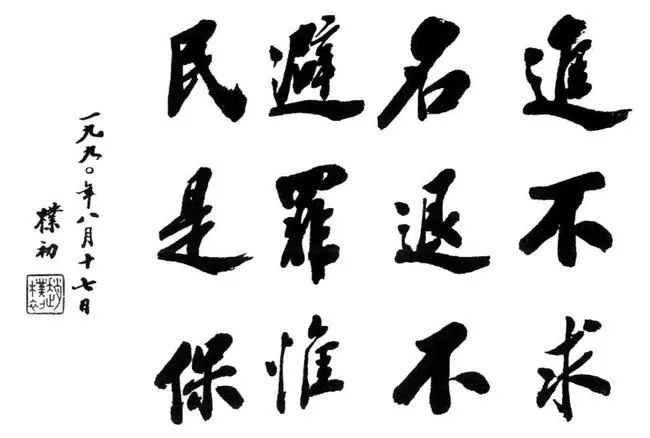 進不求
名退不
避罪惟
民是保
一九九〇年八月十七日
樸初
趙樸初